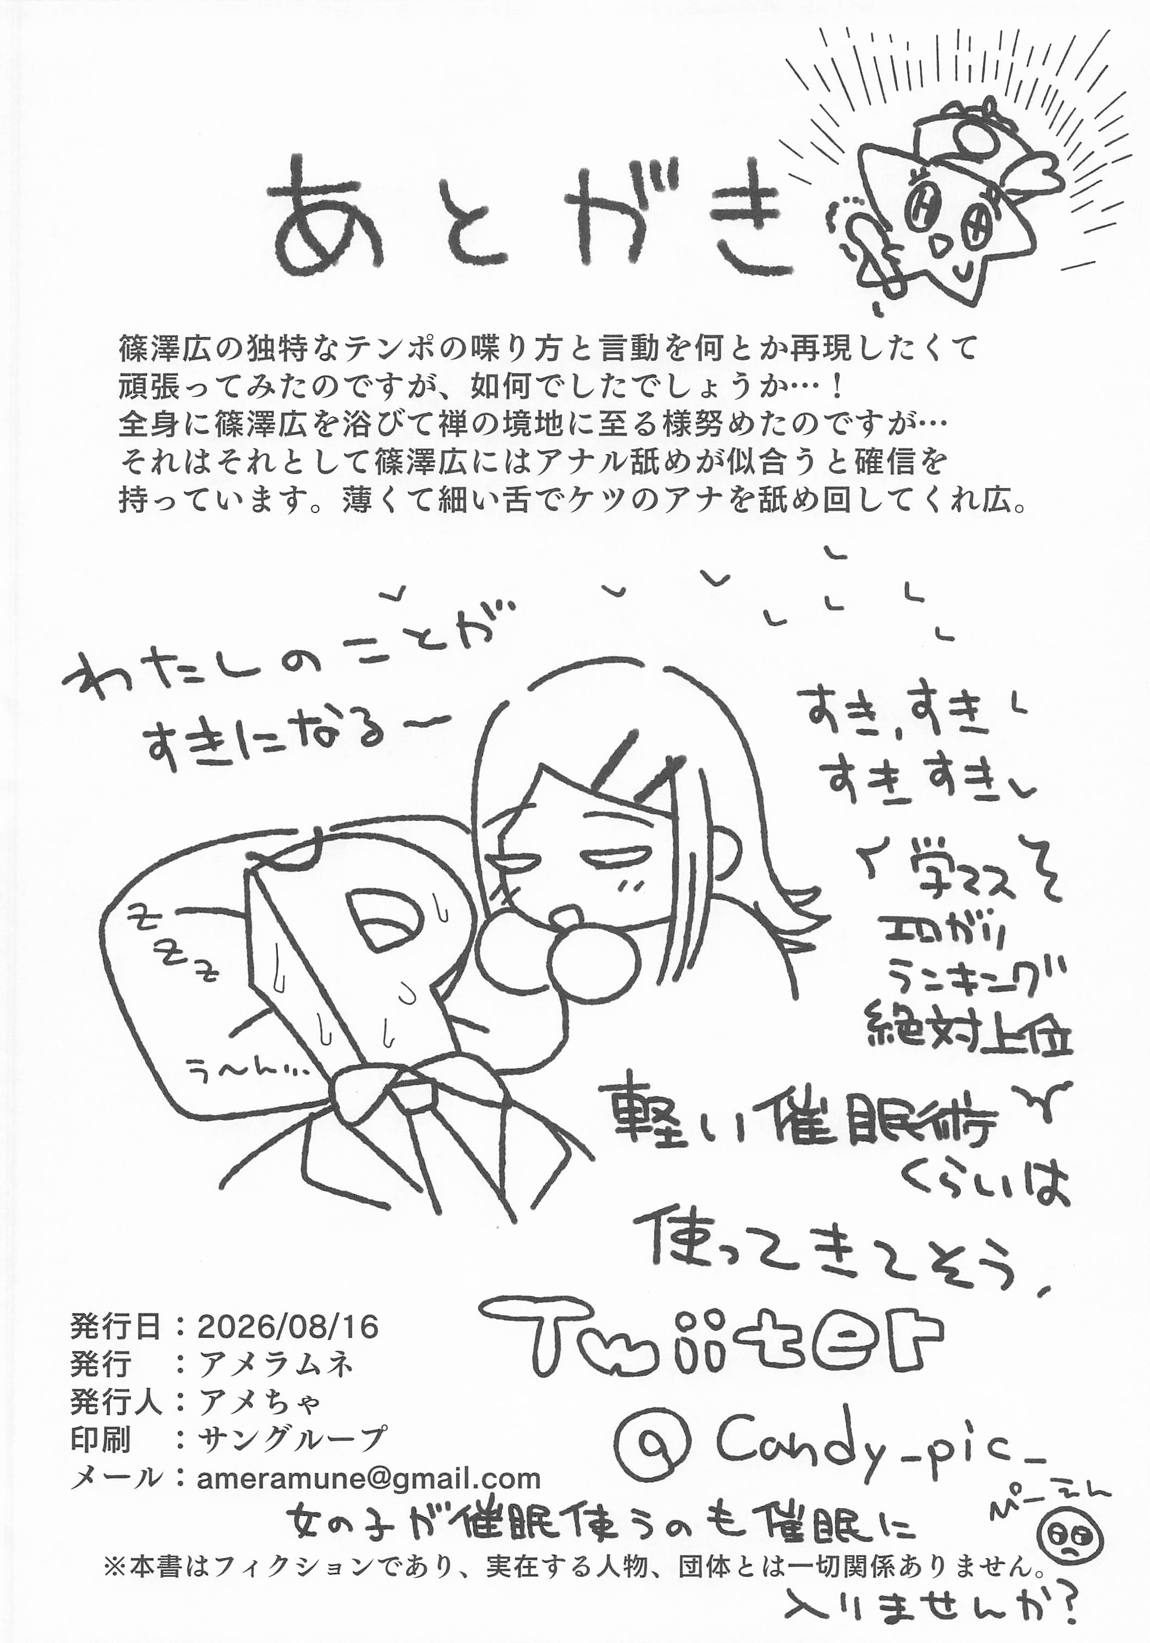 あとがき
篠澤広の独特なテンポの喋り方と言動を何とか再現したくて
頑張ってみたのですが、如何でしたでしょうか…！
全身に篠澤広を浴びて禅の境地に至る様努めたのですが…
それはそれとして篠澤広にはアナル舐めが似合うと確信を
持っています。薄くて細い舌でケツのアナを舐め回してくれ広。
わたしのことが
すきになる〜
すき、すき
すき すき
学マス
エロがり
ランキング
絶対上位
軽い催眠術
くらいは
使ってきてそう、
zzz
う〜ん…
Twiiter
@Candy_pic_
発行日：2026/08/16
発行　：アメラムネ
発行人：アメちゃ
印刷　：サングループ
メール：ameramune@gmail.com
ぴーえん
女の子が催眠使うのも催眠に
※本書はフィクションであり、実在する人物、団体とは一切関係ありません。
入りませんか？